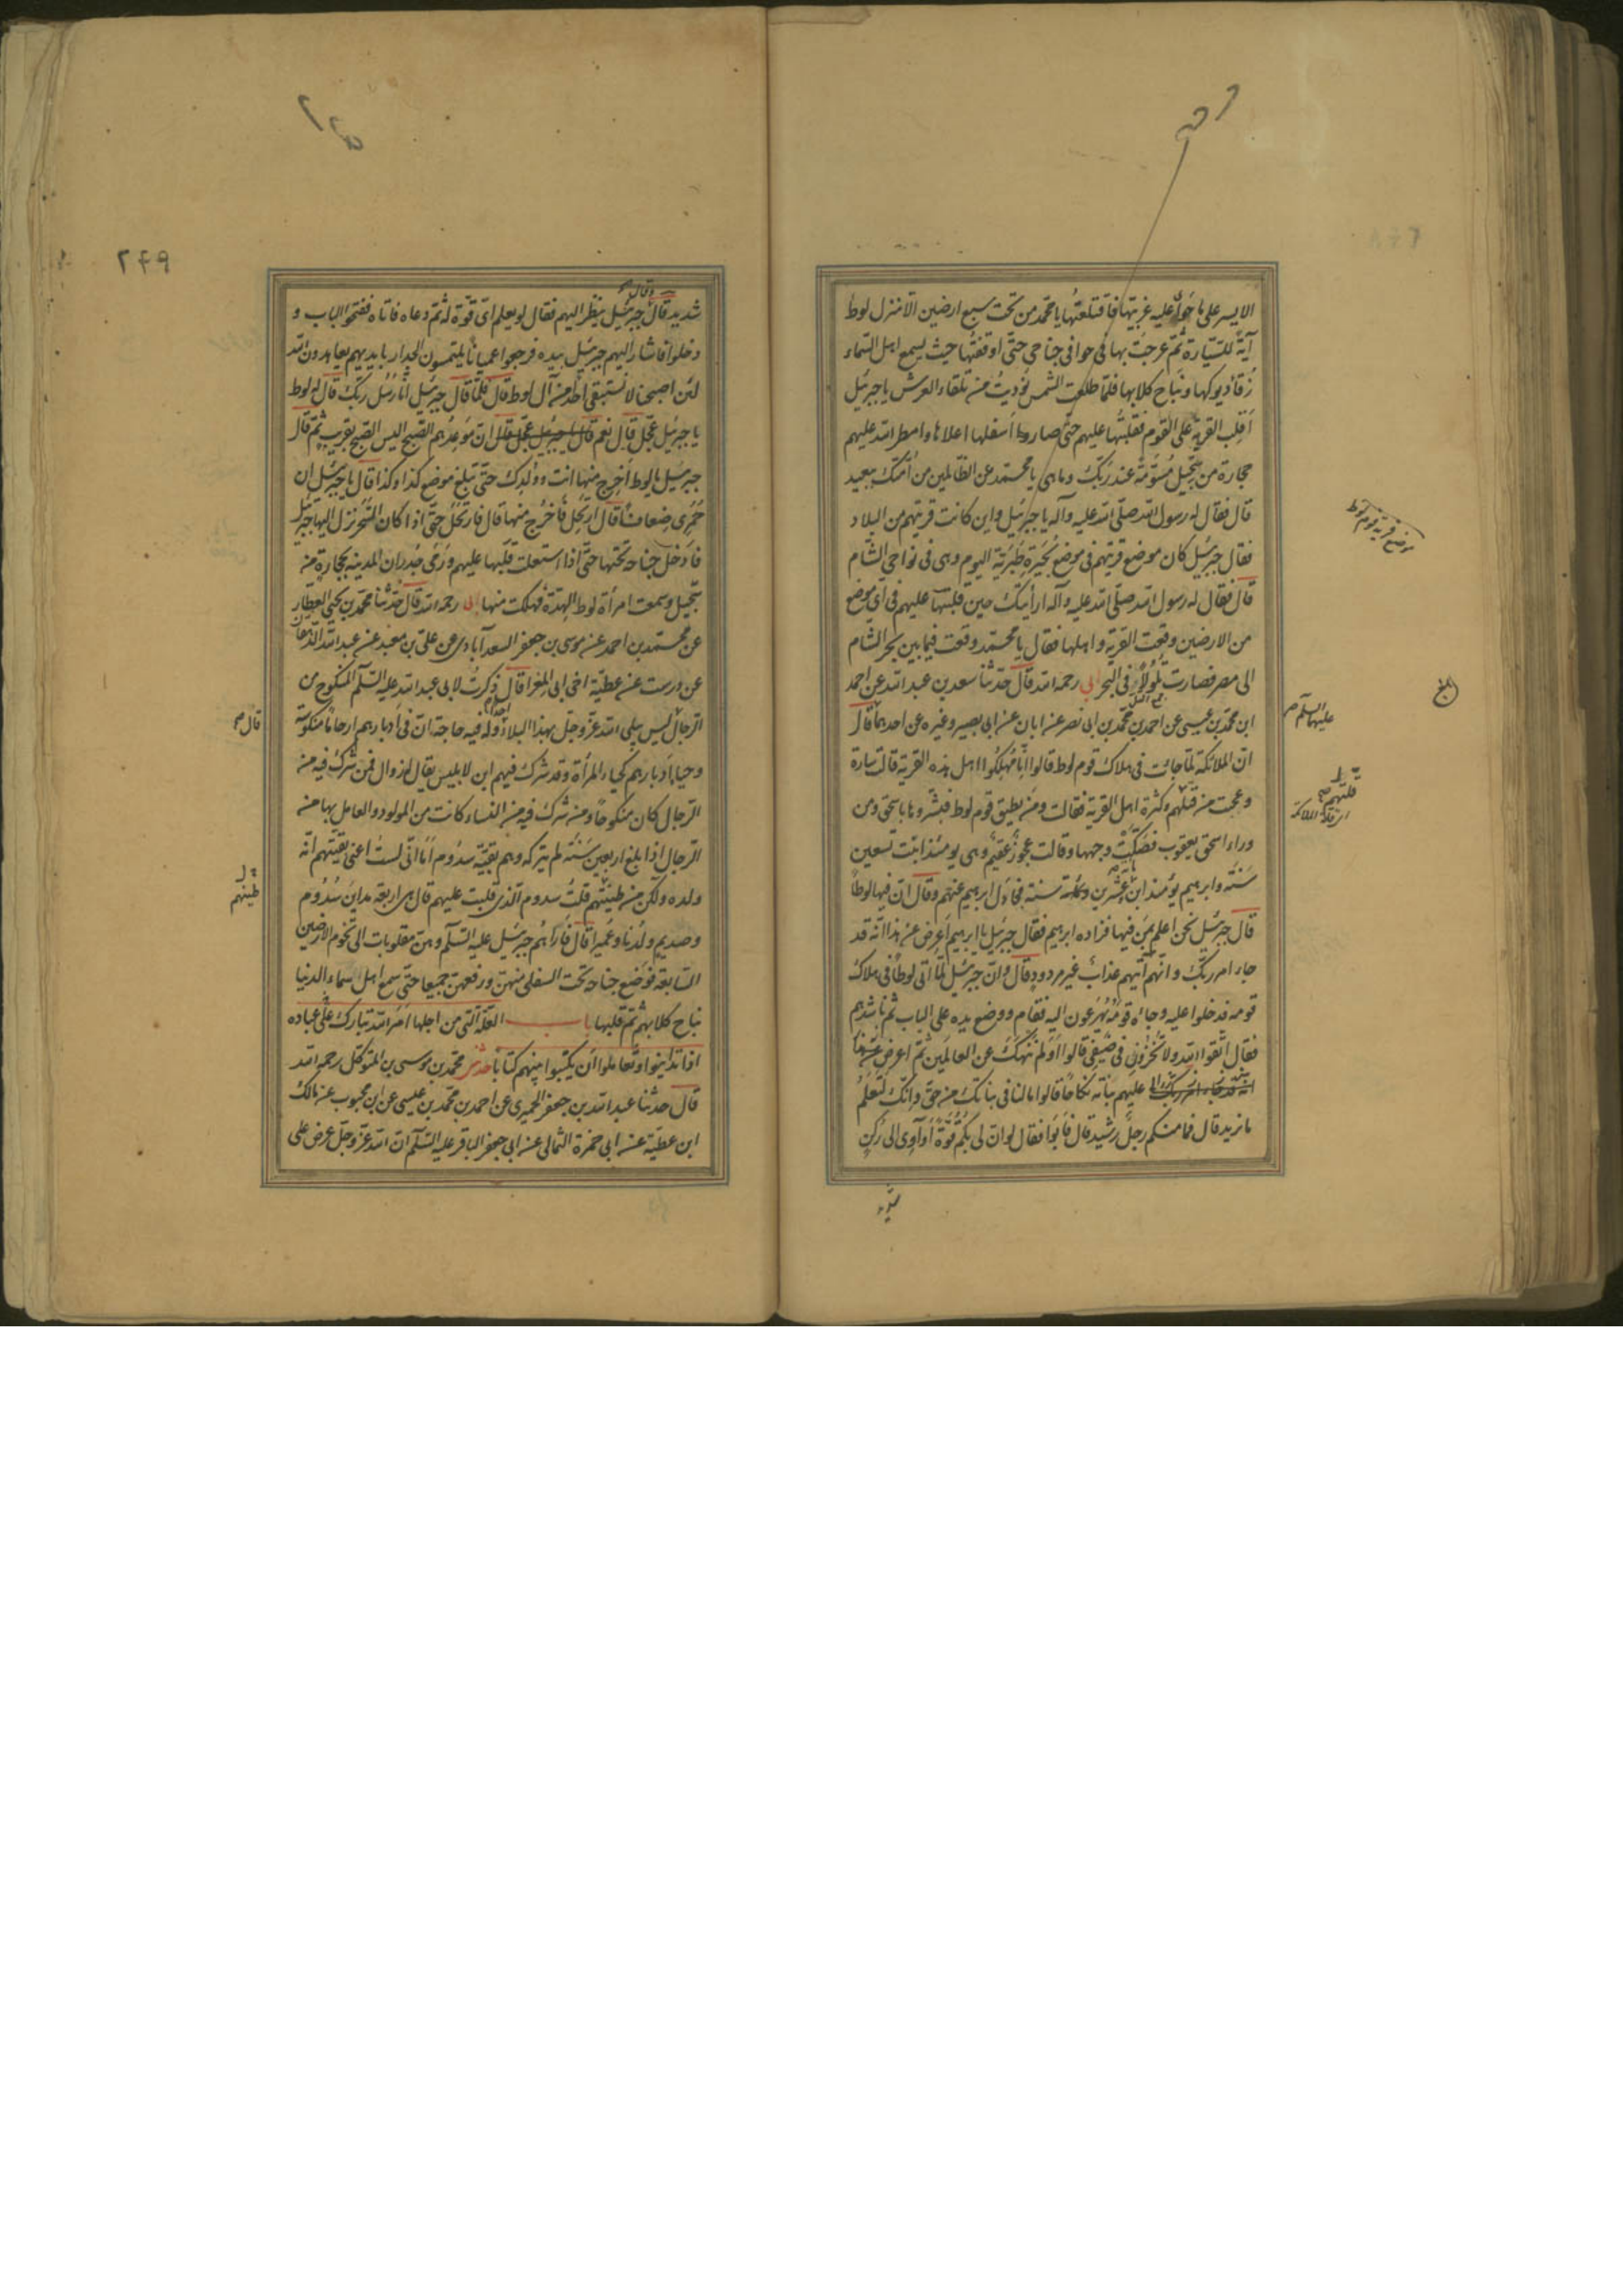 الايسر على ما حوى عليه غربيها فاقتلعتها يا محمد من تحت سبع ارضين الا منزل لوط
آية للسيارة ثم عرجت بها فى خوافى جناحى حتى اوقفتها حيث يسمع اهل السماء
زقاء ديوكها و نباح كلابها فلما طلعت الشمس نوديت من تلقاء العرش يا جبرئيل
اقلب القرية على القوم فقلبتها عليهم حتى صار اسفلها اعلاها وامطر الله عليهم
حجارة من سجيل مسومة عند ربك وما هى يا محمد عن الظالمين من امتك ببعيد
قال فقال له رسول الله صلى الله عليه وآله يا جبرئيل واين كانت قريتهم من البلاد
فقال جبرئيل كان موضع قريتهم فى موضع بحيرة طبرية اليوم وهى فى نواحى الشام
قال فقال له رسول الله صلى الله عليه وآله ارأيتك حين قلبتها عليهم فى اى موضع
من الارضين وقعت القرية واهلها فقال يا محمد وقعت فيما بين بحر الشام
الى مصر فصارت تلولا فى البحر ابى رحمه الله قال حدثنا سعد بن عبد الله عن احمد
ابن محمد بن عيسى عن احمد بن محمد بن ابى نصر عن ابان عن ابى بصير وغيره عن احدهما قال
ان الملائكة لما جائت فى هلاك قوم لوط قالوا انا مهلكوا اهل هذه القرية قالت سارة
وعجبت من قلتهم وكثرة اهل القرية فقالت ومن يطيق قوم لوط فبشروها باسحق ومن
وراء اسحق يعقوب فصكت وجهها وقالت عجوز عقيم وهى يومئذ ابنت تسعين
سنة وابرهيم يومئذ ابن عشرين ومائة سنة فجادل ابرهيم عنهم وقال ان فيها لوطا
قال جبرئيل نحن اعلم بمن فيها فزاده ابرهيم فقال جبرئيل يا ابرهيم اعرض عن هذا انه قد
جاء امر ربك وانهم آتيهم عذاب غير مردود قال وان جبرئيل لما اتى لوطا فى هلاك
قومه فدخلوا عليه وجاءه قومه يهرعون اليه فقام ووضع يده على الباب ثم ناشدهم
فقال اتقوا الله ولا تخزون فى ضيفى قالوا اولم ننهك عن العالمين ثم اعرض عن هذا
انه قد جاء امر ربك عليهم بناته نكاحا قالوا ما لنا فى بناتك من حق وانك لتعلم
ما نريد قال فما منكم رجل رشيد قال فابوا فقال لو ان لى بكم قوة او آوى الى ركن
موضع قرية قوم لوط
عليهما السلام
قلتهم
شديد قال جبرئيل ينظر اليهم فقال لو يعلم اى قوة له ثم دعاه فاتاه ففتحوا الباب و
دخلوا فاشار اليهم جبرئيل بيده فرجعوا عميانا يلتمسون الجدار بايديهم يعاهدون الله
لئن اصبحنا لا نستبقى احدا من آل لوط قال فلما قال جبرئيل انا رسل ربك قال له لوط
يا جبرئيل عجل قال نعم قال يا جبرئيل عجل قال ان موعدهم الصبح اليس الصبح بقريب ثم قال
جبرئيل يا لوط اخرج منها انت وولدك حتى تبلغ موضع كذا وكذا قال يا جبرئيل ان
حمرى ضعاف قال ارتحل فاخرج منها قال فارتحل حتى اذا كان السحر نزل اليها جبرئيل
فادخل جناحه تحتها حتى اذا استعلت قلبها عليهم ورمى جدران المدينة بحجارة من
سجيل وسمعت امرأة لوط الهدة فهلكت منها ابى رحمه الله قال حدثنا محمد بن يحيى العطار
عن محمد بن احمد عن موسى بن جعفر السعدآبادى عن على بن معبد عن عبد الله الدهقان
عن درست عن عطية اخى ابى المغرا قال ذكرت لابى عبد الله عليه السلام المنكوح من
الرجال ليس يبلى الله عز وجل بهذا البلاء وله فيه حاجة ان فى ادبارهم ارحاما منكوسة
وحياء ادبارهم كحياء المرأة وقد شرك فيهم ابن لابليس يقال له زوال فمن شرك فيه من
الرجال كان منكوحا ومن شرك فيه من النساء كانت من المولود والعامل بها من
الرجال اذا بلغ اربعين سنة لم يتركه وهم بقية سدوم اما انى لست اعنى بقيتهم انه
ولده ولكن من طينتهم قلت سدوم الذى قلبت عليهم قال هى اربعة مداين سدوم
وصديم ولدنا وعميرا قال فاتاهم جبرئيل عليه السلام وهن مقلوبات الى تخوم الارضين
السابعة فوضع جناحه تحت السفلى منهن ورفعهن جميعا حتى سمع اهل سماء الدنيا
نباح كلابهم ثم قلبها باب العلة التى من اجلها امر الله تبارك على عباده
اذا تداينوا وتعاملوا ان يكتبوا بينهم كتابا حدثنا محمد بن موسى بن المتوكل رحمه الله
قال حدثنا عبد الله بن جعفر الحميرى عن احمد بن محمد بن عيسى عن ابن محبوب عن مالك
ابن عطية عن ابى حمزة الثمالى عن ابى جعفر الباقر عليه السلام ان الله عز وجل عرض على
قال
طينتهم
٢٤٩